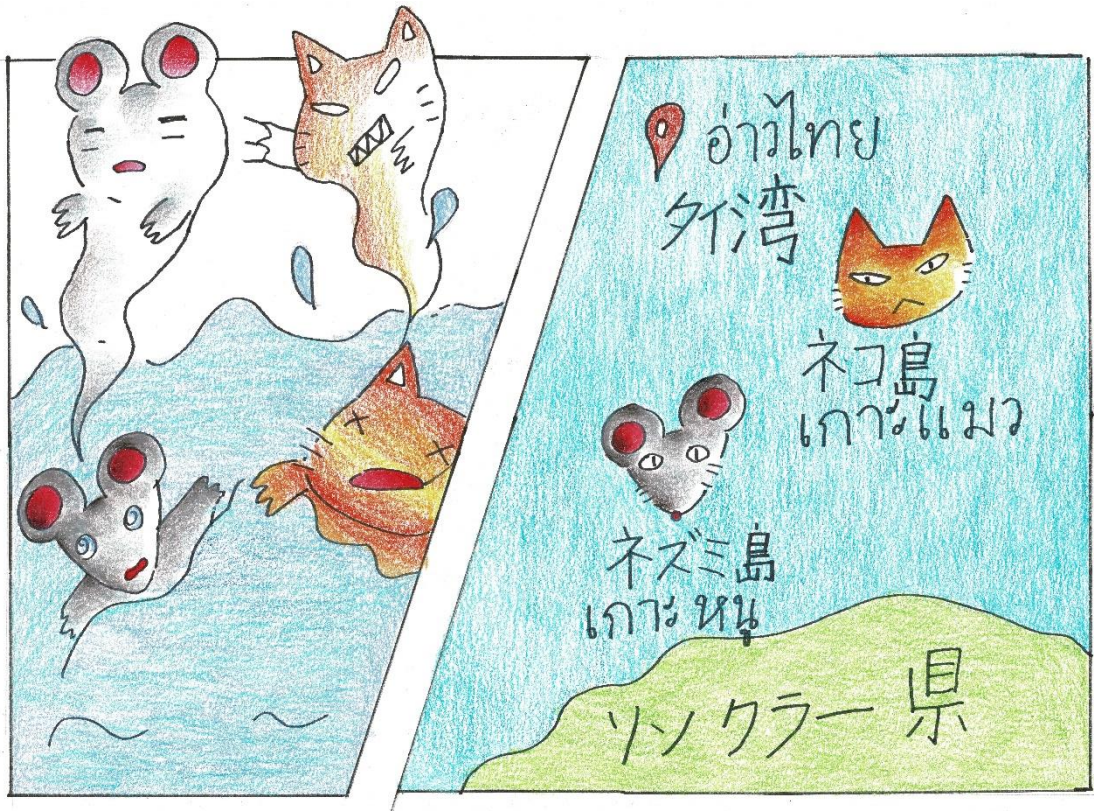 อ่าวไทย
タイ湾
ネコ島
เกาะแมว
ネズミ島
เกาะหนู
ソンクラー県